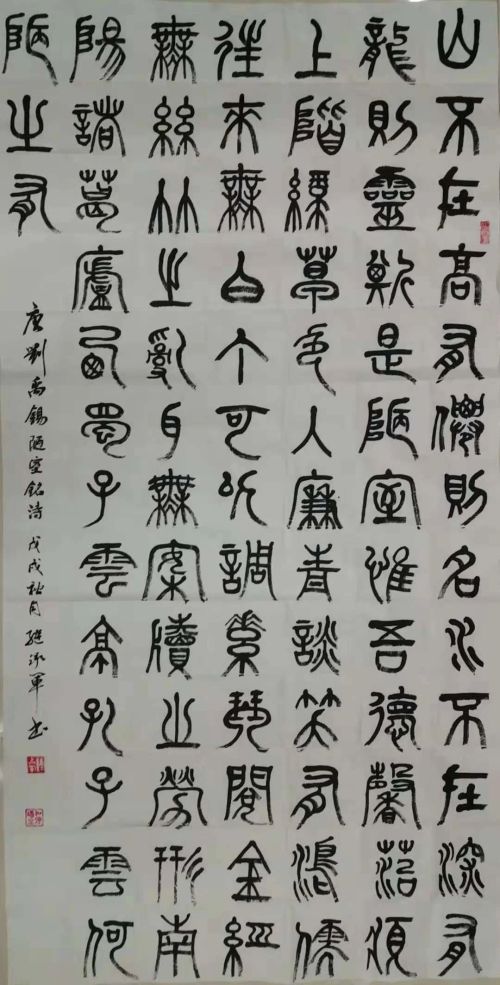 山不在高有僊則名水不在深有
龍則靈斯是陋室惟吾德馨苔痕
上階綠草色入簾青談笑有鴻儒
往來無白丁可以調素琴閱金經
無絲竹之亂耳無案牘之勞形南
陽諸葛廬西蜀子雲亭孔子雲何
陋之有
唐劉禹錫陋室銘詩 戊戌秋月 軍書